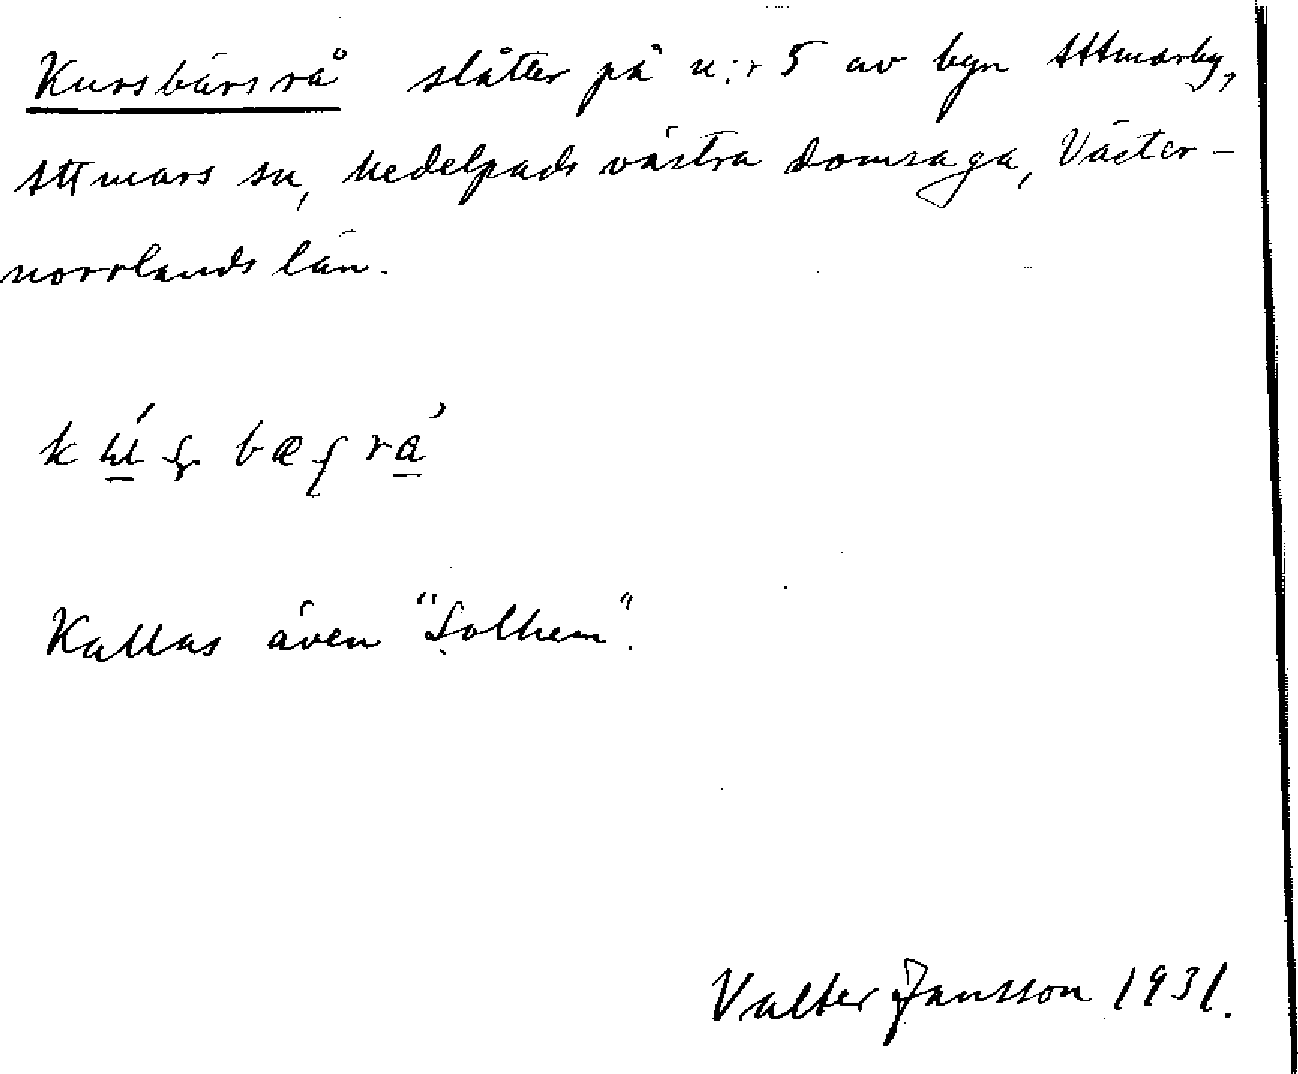 Kursbärsrå slåtter på n:r 5 av byn Attmarby,
Attmars sn, Medelpads västra domsaga, Väster-
norrlands län.
Kallas även "Solhem".
Valter Jansson 1931.